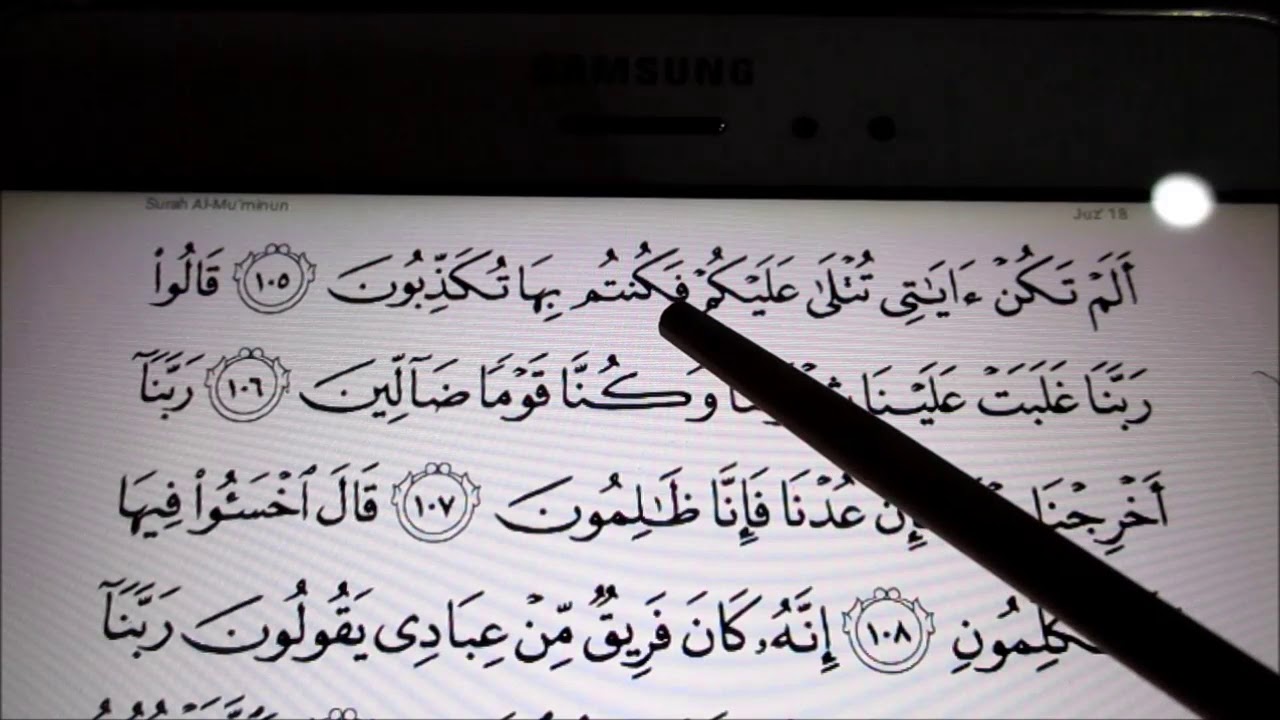 SAMSUNG
Surah Al-Mu'minun
Juz' 18
أَلَمْ تَكُنْ ءَايَٰتِى تُتْلَىٰ عَلَيْكُمْ فَكُنتُم بِهَا تُكَذِّبُونَ ١٠٥ قَالُوا۟
رَبَّنَا غَلَبَتْ عَلَيْنَا وَكُنَّا قَوْمًا ضَآلِّينَ ١٠٦ رَبَّنَآ
أَخْرِجْنَا فَإِنْ عُدْنَا فَإِنَّا ظَٰلِمُونَ ١٠٧ قَالَ ٱخْسَـُٔوا۟ فِيهَا
تُكَلِّمُونِ ١٠٨ إِنَّهُۥ كَانَ فَرِيقٌ مِّنْ عِبَادِى يَقُولُونَ رَبَّنَآ